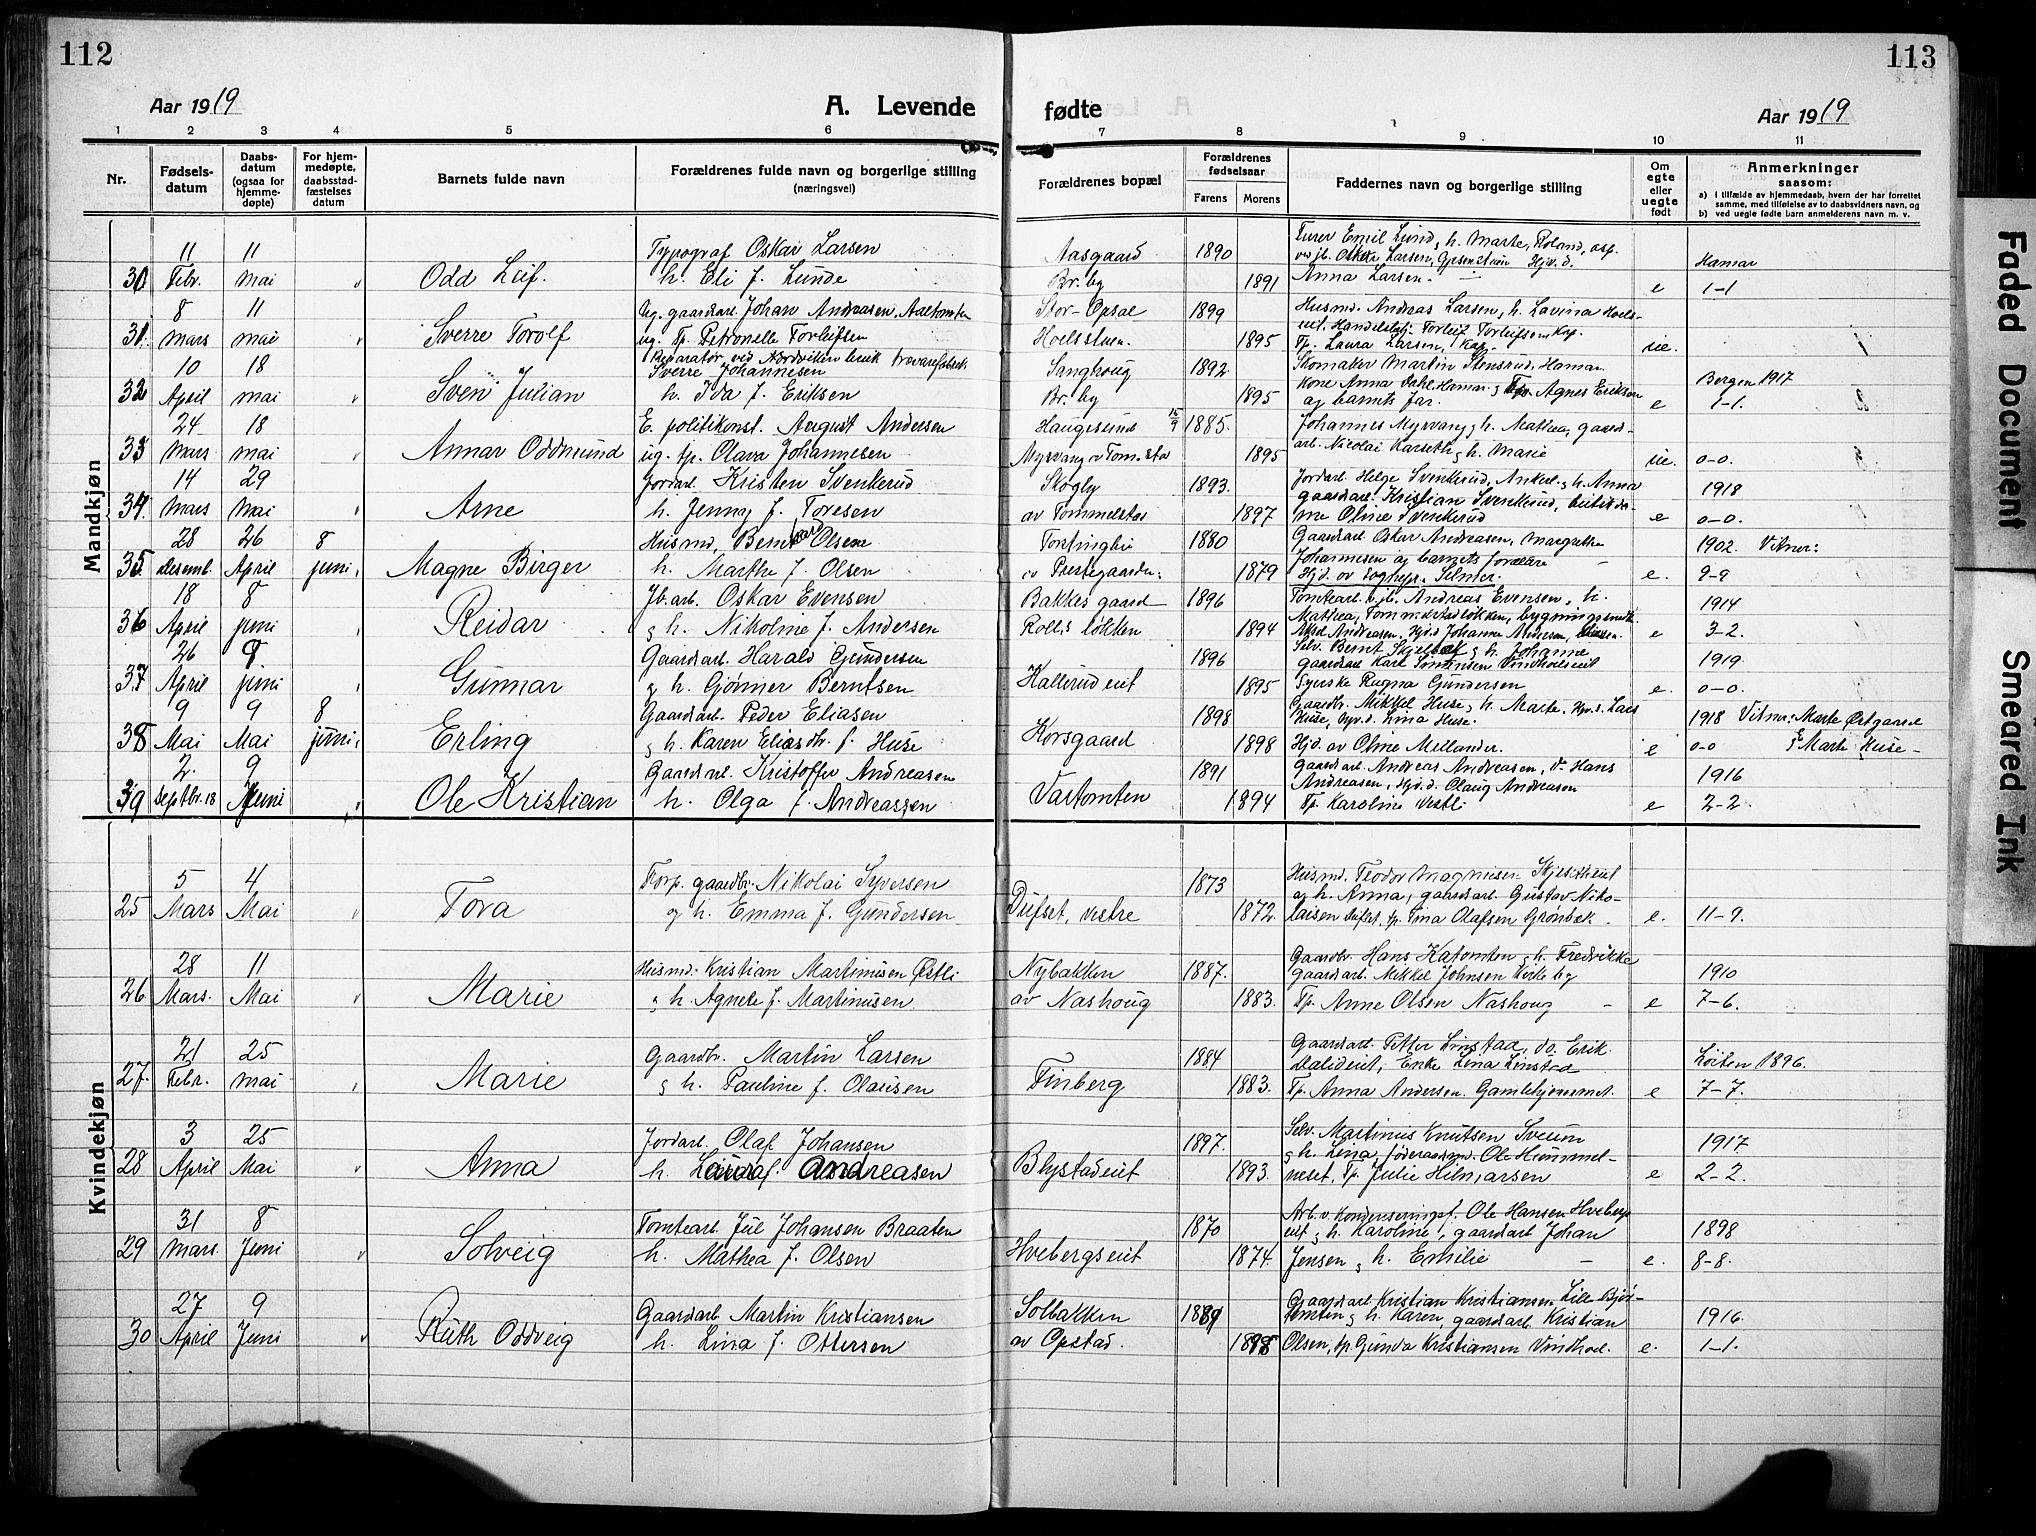 112
113
Aar 1919
A. Levende
fødte
Aar 1919
1 2 3 4 5 6 7 8 9 10 11
Nr.
Fødsels-
datum
Daabs-
datum
(ogsaa for
hjemme-
døpte)
For hjem-
medøpte,
daabsstad-
fæstelses
datum
Barnets fulde navn
Forældrenes fulde navn og borgerlige stilling
(næringsvei)
Forældrenes bopæl
Forældrenes
fødselsaar
Farens Morens
Faddernes navn og borgerlige stilling
Om
egte
eller
uegte
født
Anmerkninger
saasom:
a) i tilfælde av hjemmedaab, hvem der har forrettet
samme, med tilføielse av to daabsvidners navn, og
b) ved uegte fødte barn anmelderens navn m. v.
Mandkjøn
11 11 Typograf Oskar Larsen Aasgaard 1890 Emil Lund, h. Marte, Roland, asp. Hamar
30 Febr. mai Odd Leif. h. Eli f. Lunde Br.by 1891 Anna Larsen e 1-1
8 11 Ug. gaardsarb. Johan Andreasen, Aaltomten Stor-Opsal 1899 Husmd. Andreas Larsen, h. Lavina Hoels-
31. mars mai Sverre Torolf ug. Tp. Petronelle Torleifsen Hoelsstuen. 1895 Tp. Laura Larsen, Kap. ue.
10 18 Reparatør ved Nordviken bruk Sverre Johannesen Sanghoug 1892 Skomaker Martin Stensrud, Hamar Bergen 1917
32 April mai Svein Julian h. Ida f. Eriksen Br.by 1895 Kone Anna Dahl Hamar, Tp. Agnes Eriksen og barnets far. e 1-1.
24 18 E. politikonst. August Andersen Haugesund 15/9 1885. Johannes Myrvang, h. Mathea, gaards-
33 Mars mai Annar Oddmund ug. tp. Olava Johannesen Myrvang v Tom.stad 1895 arb. Nicolai Karseth, h. Marie ue. 0-0.
14 29 Jordarb. Kristen Svenkerud Skogly 1893. Jordarb. Helge Svenkerud, Anker, h. Anna 1918
34. Mars Mai Arne h. Jenny f. Toresen av Tommelstad 1897 gaardsarb. Kristian Svenkerud, Oline Svenkerud e 0-0.
28 26 8 Husmd. Bernthard Olsen 1880 Gaardsarb. Oskar Andreasen, Margrethe 1902. Vitner:
35. desemb. April juni. Magne Birger h. Marthe f. Olsen v Prestegaarden. 1879 Johannesen og barnets forældre Hjd. av Sognepr. Selmer. e. 9-9
18 8 Jb.arb. Oskar Evensen Bakkes gaard 1896 Tomtearb. v. jb. Andreas Evensen, h. 1914
36 April juni Reidar & h. Nikoline f. Andersen Rolls løkken 1894 Mathea, Tommelstadløkken, bygningssnedk. Andreasen, Hjd. Johanne Andersen e 3-2.
26 9 Gaardsarb. Harald Gundersen 1896 Selv. Bernt & h. Johanne 1919.
37 April juni Gunnar & h. Gjønner Berntsen Kallerudeiet 1895 gaardsarb. Karl Sørensen Vindholseiet Syerske Ragna Gundersen e. 0-0.
9 9 8 Gaardsarb. Peder Eliasen 1898 Gaardbr. Mikkel Huse, h. Marte. Hjv. d. Lars 1918 Vitner: Marte Østgaard
38 Mai Mai juni. Erling & h. Karen Eliasdtr. f. Huse Korsgaard 1898 Huse, Hjv. d. Lina Huse. Hjd. av Oline Mellander. e 0-0 & Marte Huse -
2. 9 Gaardsarb. Kristoffer Andreasen 1891 Gaardsarb. Andreas Andreasen, do. Hans 1916
39 Septbr. 18 Juni Ole Kristian h. Olga f. Andreassen Vastomten 1894 Andreasen, Hjd. d. Olaug Andreasen Tp. Karoline Vestli e 2-2.
Kvindekjøn
5 4 Forp. gaardbr. Nikolai Syversen 1873 Husmd. Teodor Magnusen
25 Mars Mai Tora og h. Emma f. Gundersen Dufset, vestre 1872. og h. Anna, gaardsarb. Gustav Niko-
laisen Dufset, tp. Tina Olafsen Grønbæk e. 11-9.
28 11 Husmd. Kristian Martinusen Østli Nybakken 1887. Gaardbr. Hans Katomten, h. Fredrikke 1910
26 Mars. Mai Marie & h. Agnete f. Martinusen av Nashoug 1883. gaardsarb. Mikkel Johnsen Kirkeby Tp. Anne Olsen Nashoug e 7-6.
21 25 Gaardbr. Martin Larsen 1884 Gaardsarb. Petter Linstad, do. Erik Løiten 1896.
27. Febr. mai Marie & h. Pauline f. Olausen Finberg 1883. Dalideiet, Enke Lina Linstad Tp. Anna Andersen. Gamlehjemmet. e 7-7.
3 25 Jordarb. Olaf Johansen 1897. Selv. Martinus Knutsen Sveum 1917
28 April Mai Anna h. Laura f. Andreasen Blystadeiet 1893. & h. Lina, føderaadsmd. Ole Himmel-
neset, Tp. Julie Hilmarsen e 2-2.
31 8 Tomtearb. Jul Johansen Braaten 1870 Arb. v. Kondenseringsf. Ole Hansen Hvebergs 1898
29 Mars. Juni Solveig h. Mathea f. Olsen Hvebergseiet 1874. eiet, h. Karoline, gaardsarb. Johan Jensen, h. Emilie e. 8-8.
27 9 Gaardsarb. Martin Kristiansen Solbakken Gaardsarb. Kristian Kristiansen Lille Bjør- 1916.
30 April Juni Ruth Oddveig h. Lina f. Ottersen av Opstad. 1898 tomten & h. Karen, gaardsarb. Kristian Olsen, tp. Gunda Kristiansen e. 1-1.
Faded Document
Smeared Ink